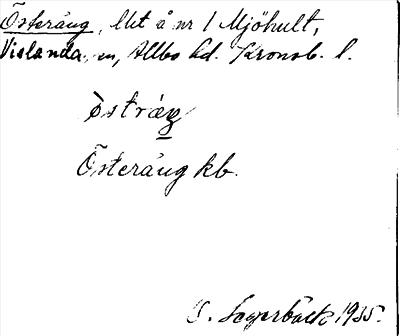 Österäng, lht å nr 1 Mjöhult,
Vislanda sn, Allbo hd. Kronob. l.
östräŋ
Österäng kb.
Lagerbäck 1935.